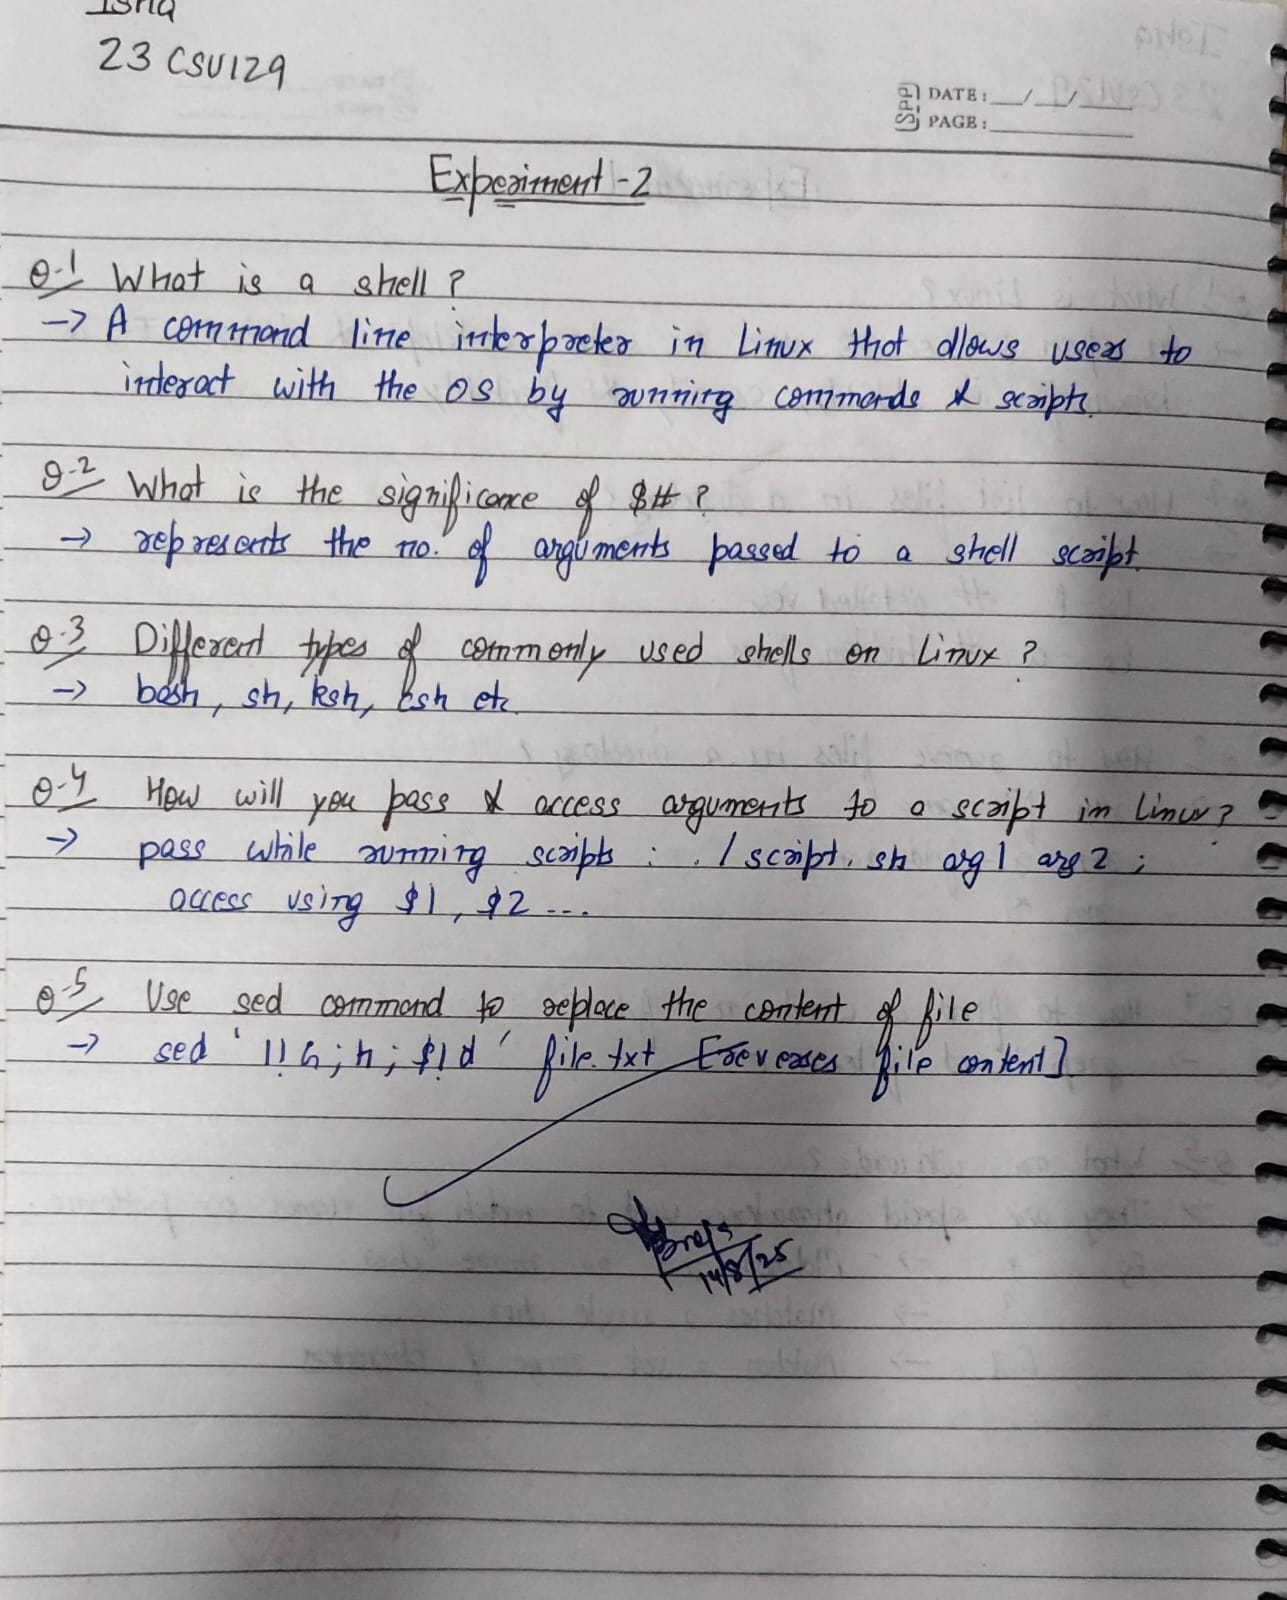 Isha
23CSU129
DATE: __/__/____
PAGE: ________
Experiment-2
Q.1 What is a shell ?
-> A command line interpreter in Linux that allows users to
interact with the OS by running commands & scripts.
Q.2 What is the significance of $# ?
-> represents the no. of arguments passed to a shell script.
Q.3 Different types of commonly used shells on Linux ?
-> bash, sh, ksh, csh etc.
Q.4 How will you pass & access arguments to a script in Linux?
-> pass while running scripts : ./script.sh arg1 arg2 ;
access using $1, $2 ...
Q.5 Use sed command to replace the content of file
-> sed '1!G;h;$!d' file.txt [reverses file content]
14/8/25